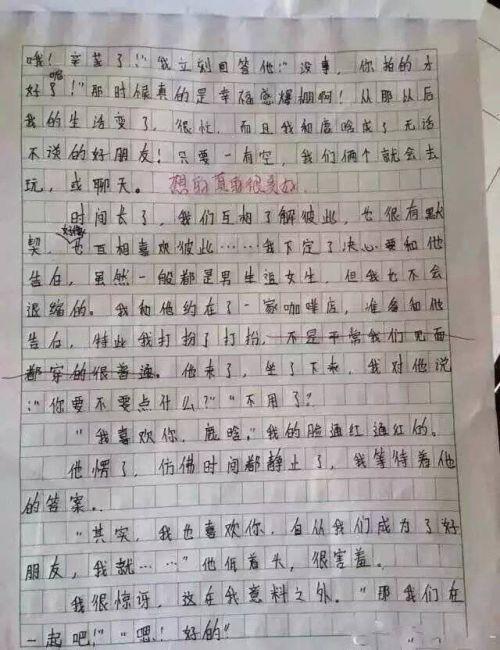 哦！辛苦了！"我立刻回答他："没事，你拍的才
好呢！"那时候真的是幸福感爆棚啊！从那从后
我的生活变了，很忙，而且我和鹿晗成了无话
不说的好朋友！只要一有空，我们俩个就会去
玩，或聊天。想的真的很美好。
时间长了，我们互相了解彼此，也很有默
契，好像也互相喜欢彼此……我下定了决心要和他
告白，虽然一般都是男生追女生，但我也不会
退缩的。我和他约在了一家咖啡店，准备和他
告白，特此我打扮了打扮，不是平常我们见面
都穿的很普通。他来了，坐了下来，我对他说
："你要不要点什么？""不用了？
"我喜欢你，鹿晗。"我的脸通红通红的。
他愣了，仿佛时间都静止了，我等待着他
的答案。
"其实，我也喜欢你，自从我们成为了好
朋友，我就……"他低着头，很害羞。
我很惊讶，这在我意料之外。"那我们在
一起吧！""嗯！好的"